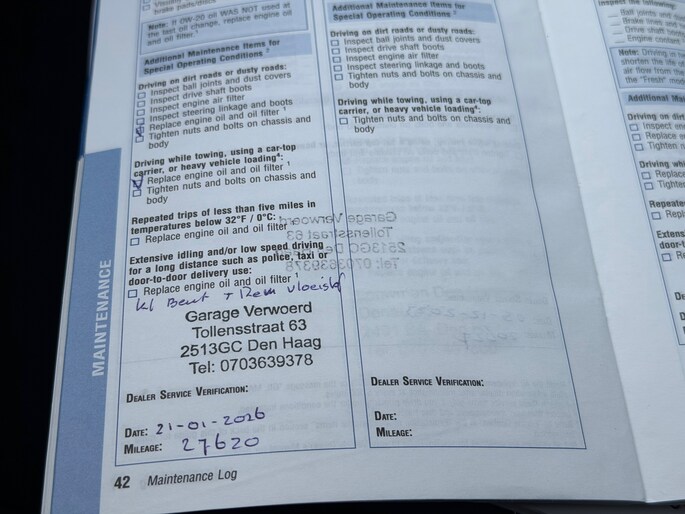 brake pads/discs
Note: If 0W-20 oil WAS NOT used at
the last oil change, replace engine oil
and oil filter.¹
Additional Maintenance Items for
Special Operating Conditions ²
Driving on dirt roads or dusty roads:
Inspect ball joints and dust covers
Inspect drive shaft boots
Inspect engine air filter
Inspect steering linkage and boots
Replace engine oil and oil filter ¹
Tighten nuts and bolts on chassis and
body
Driving while towing, using a car-top
carrier, or heavy vehicle loading⁴:
Replace engine oil and oil filter ¹
Tighten nuts and bolts on chassis and
body
Repeated trips of less than five miles in
temperatures below 32°F / 0°C:
Replace engine oil and oil filter ¹
Extensive idling and/or low speed driving
for a long distance such as police, taxi or
door-to-door delivery use:
Replace engine oil and oil filter ¹
+ Rem vloeistof
Garage Verwoerd
Tollensstraat 63
2513GC Den Haag
Tel: 0703639378
DEALER SERVICE VERIFICATION:
DATE: 21-01-2026
MILEAGE: 27620
42 Maintenance Log
MAINTENANCE
Additional Maintenance Items for
Special Operating Conditions ²
Driving on dirt roads or dusty roads:
Inspect ball joints and dust covers
Inspect drive shaft boots
Inspect engine air filter
Inspect steering linkage and boots
Tighten nuts and bolts on chassis and
body
Driving while towing, using a car-top
carrier, or heavy vehicle loading⁴:
Tighten nuts and bolts on chassis and
body
DEALER SERVICE VERIFICATION:
DATE:
MILEAGE:
Inspect the following:
Ball joints and
Brake lines and
Drive shaft
Engine
Note: Driving in
shorten the life
air flow from the
the "Fresh" mod
Additional Mai
Driving on dirt
Inspect en
Replace e
Tighten n
Driving whi
Replace
Tighten
Repeate
Repl
Extens
door-t